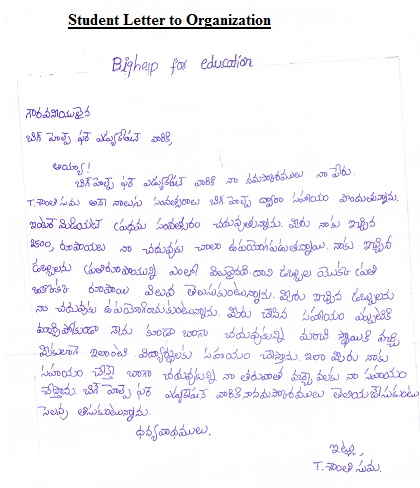 Student Letter to Organization
Bighelp for education
గౌరవనీయులైన
బిగ్ హెల్ప్ ఫర్ ఎడ్యుకేషన్ వారికి,
అయ్యా!
బిగ్ హెల్ప్ ఫర్ ఎడ్యుకేషన్ వారికి నా నమస్కారములు నా పేరు.
T. శాంతి సుమ అకా నాలుగు సంవత్సరాలు బిగ్ హెల్ప్ ద్వారా సహాయం పొందుతున్నాను.
ఇంటర్ మీడియట్ ప్రథమ సంవత్సరం చదువుతున్నాను. మీరు నాకు ఇచ్చిన
రూపాయలు నా చదువుకు చాలా ఉపయోగపడుతున్నాయి. నాకు ఇచ్చిన
డబ్బులను ప్రతిరూపాయిన్ని ఎంతో విలువైనది. దాని డబ్బుల యొక్క ప్రతి
రూపాయి విలువ తెలుసుకుంటున్నాను. మీరు ఇచ్చిన డబ్బులను
నా చదువుకు ఉపయోగించుకుంటున్నాను. మీరు చేసిన సహాయం ఎప్పటికి
మర్చిపోకుండా నేను కూడా బాగా చదువుకున్ని మంచి స్థాయికి వచ్చి
మీకులాగె ఇలాంటి విద్యార్థులకు సహాయం చేస్తాను. ఇలా మీరు నాకు
సహాయం చేస్తే బాగా చదువుకున్ని నా తరువాత వచ్చే వాలకు నా సహాయం
చేస్తాను. బిగ్ హెల్ప్ ఫర్ ఎడ్యుకేషన్ వారికి నా నమస్కారములు తెలియచేసుకుంటు
సెలవు తీసుకుంటున్నాను.
ధన్యవాదములు.
ఇట్లు,
T. శాంతి సుమ.